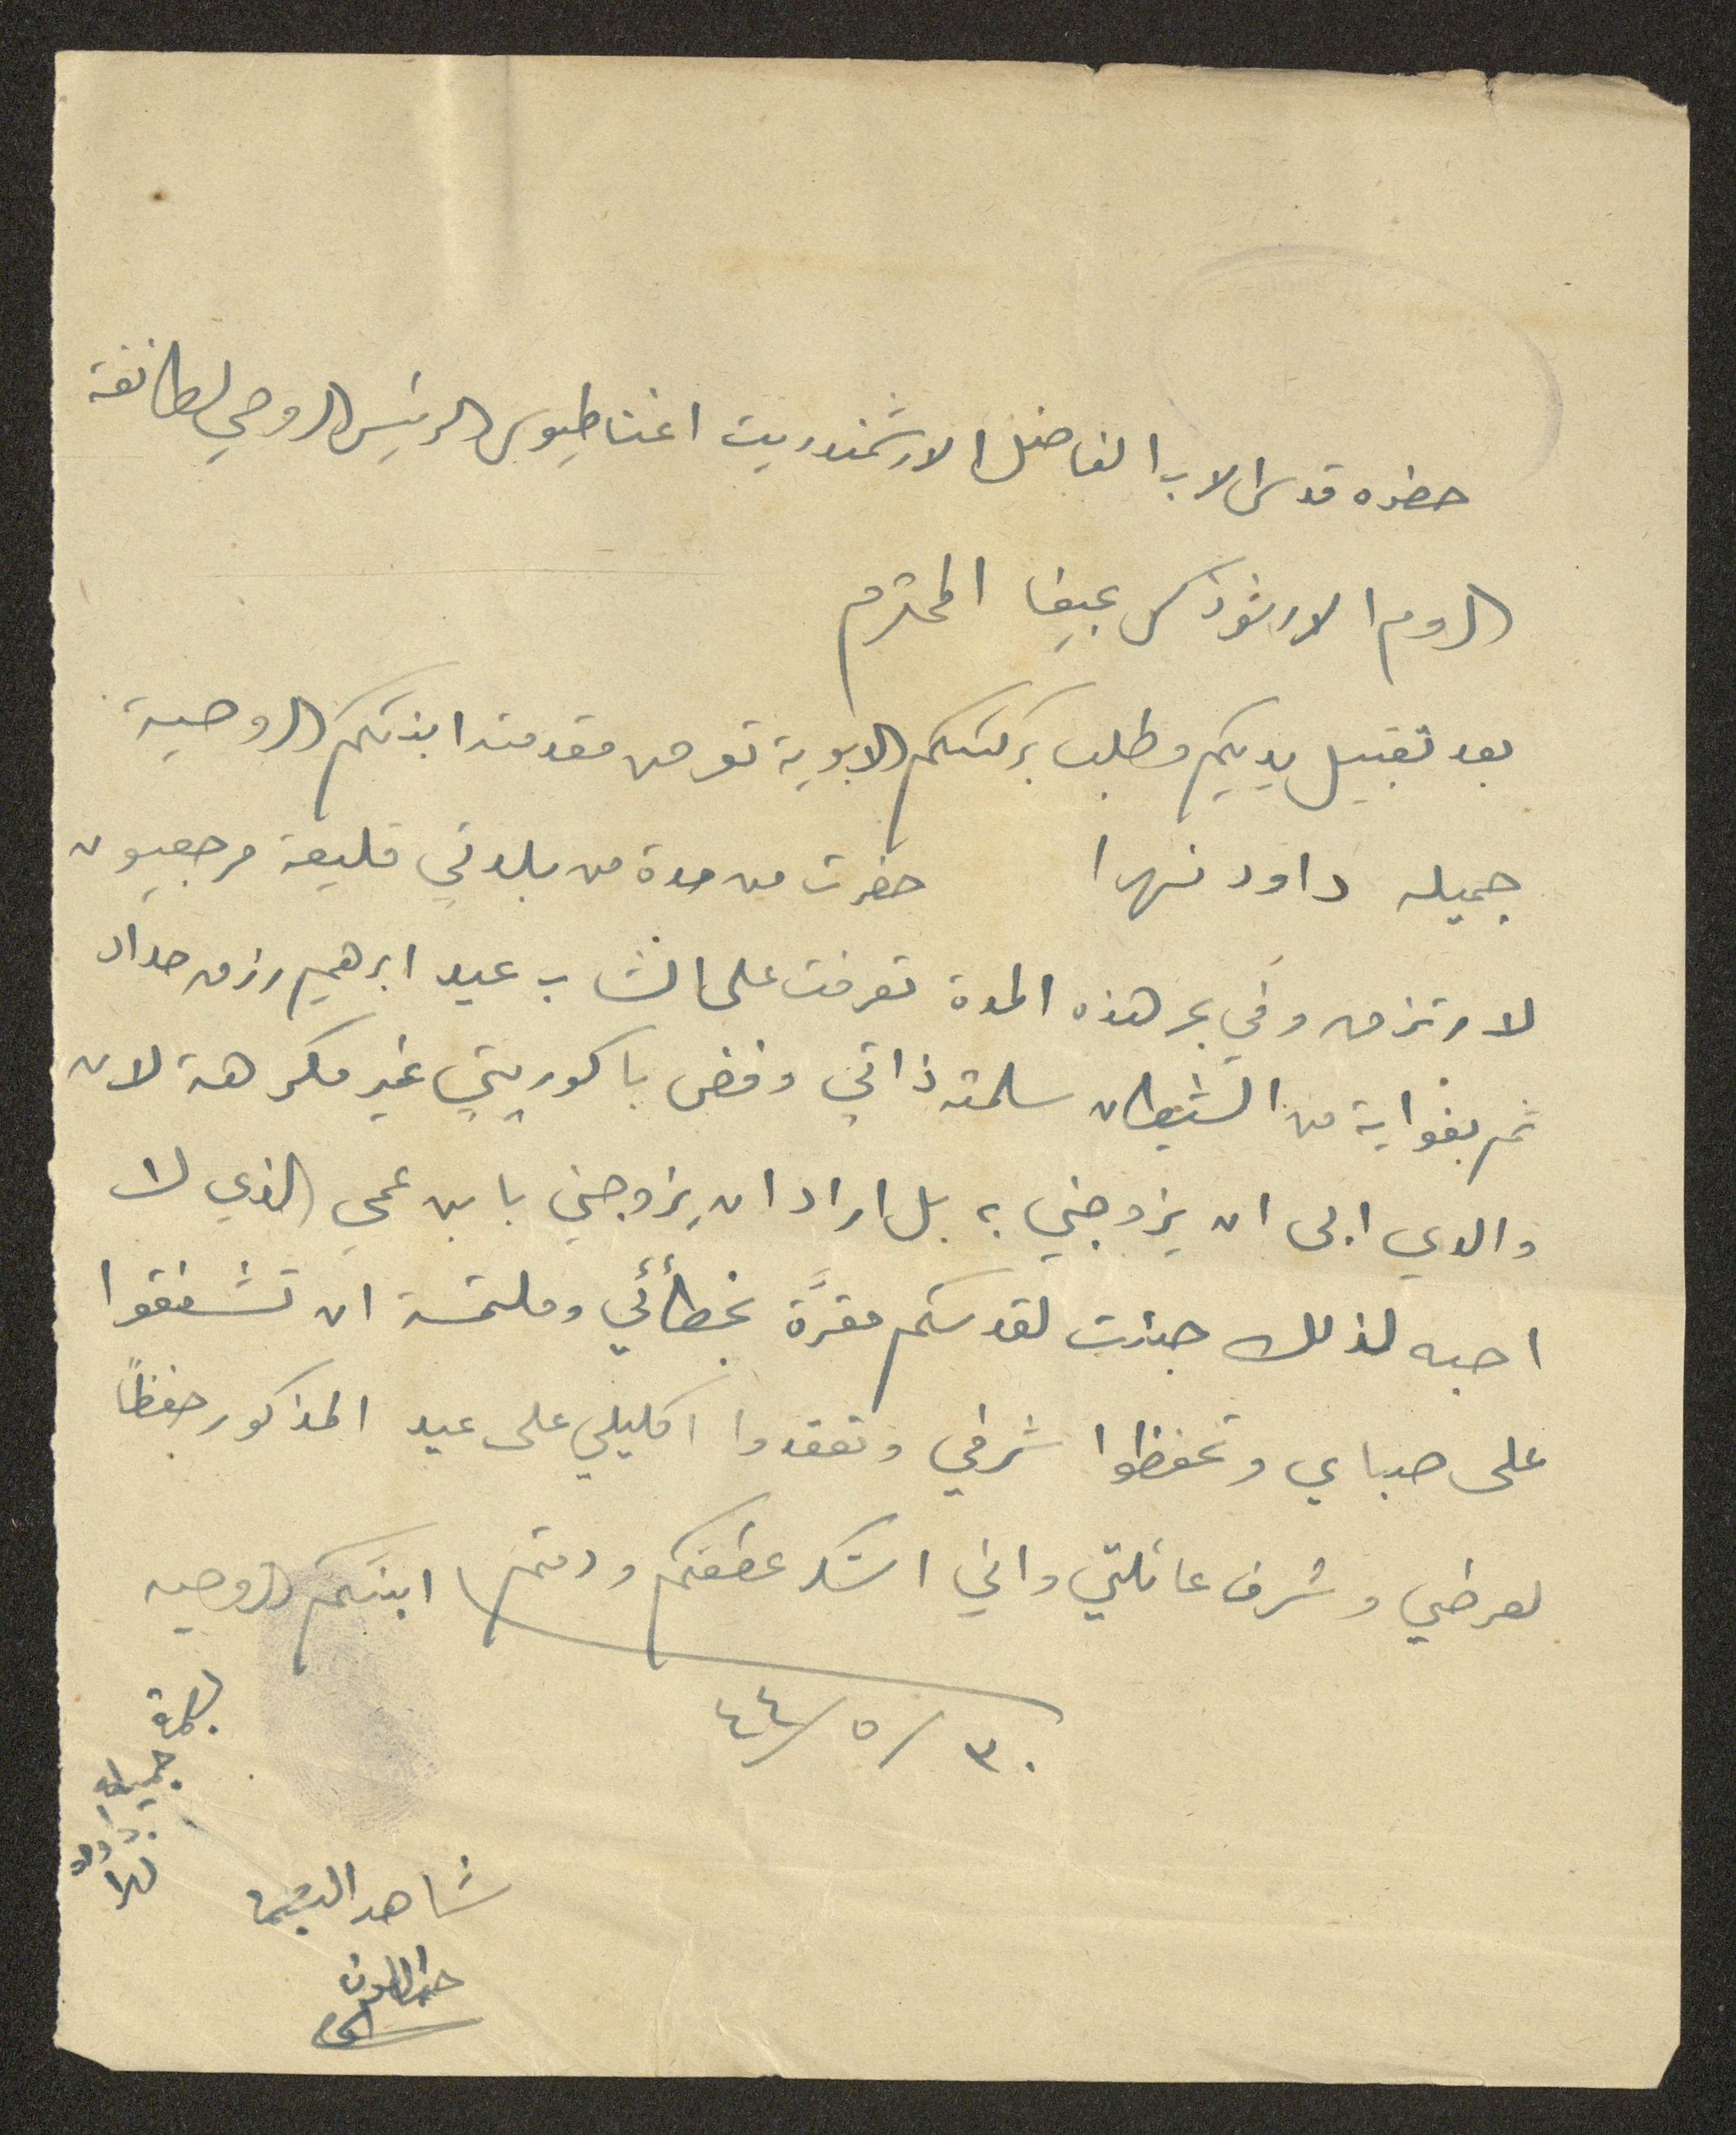 حضرة قدس الاب الفاضل الارشمندريت اغناطيوس الرئيس الروحي لطائفة
الروم الارثوذكس بحيفا المحترم
بعد تقبيل يديكم وطلب بركتكم الابوية تعرض مقدمته ابنتكم الروحية
جميله داود نهرا حضرت من مدة من بلدتي قليعة مرجعيون
لارتزق وفي بحر هذه المدة تعرفت على الشاب عيد ابرهيم رزق حداد
ثم بغواية من الشيطان سلمته ذاتي وفض باكوريتي غير مكرهة لان
والدي ابى ان يزوجني به بل اراد ان يزوجني بابن عمي الذي لا
احبه لذلك جئت لقدسكم مقرَّة بخطأئي وملتمسة ان تشفقوا
على صباي وتحفظوا شرفي وتعقدوا اكليلي على عيد المذكور حفظاً
لعرضي وشرف عائلتي واني اشكر عطفكم ودمتم ابنتكم الروحيه
٣٠/٥/٤٤
بصمة
جميله
داود
نهرا
شاهد البصمة